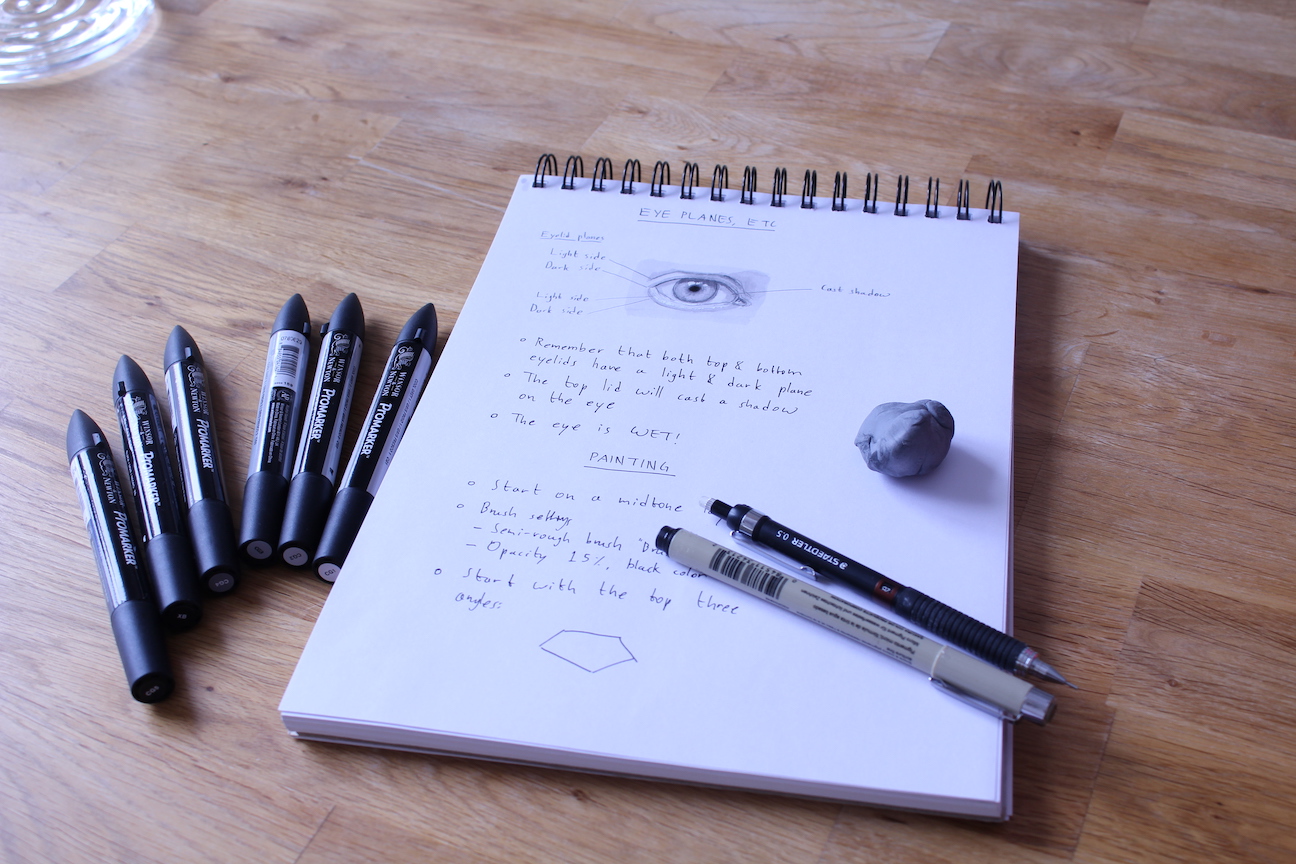 EYE PLANES, ETC
Eyelid planes
Light side
Dark side
Cast shadow
Light side
Dark side
Remember that both top & bottom
eyelids have a light & dark plane
The top lid will cast a shadow
on the eye
The eye is WET!
PAINTING
Start on a midtone
Brush settings
- Semi-rough brush
- Opacity 15%, black color
Start with the top three
angles:
STAEDTLER 0.5
WINSOR
NEWTON
PROMARKER
WINSOR
NEWTON
PROMARKER
WINSOR
NEWTON
PROMARKER
WINSOR
NEWTON
PROMARKER
PROMARKER
CG4